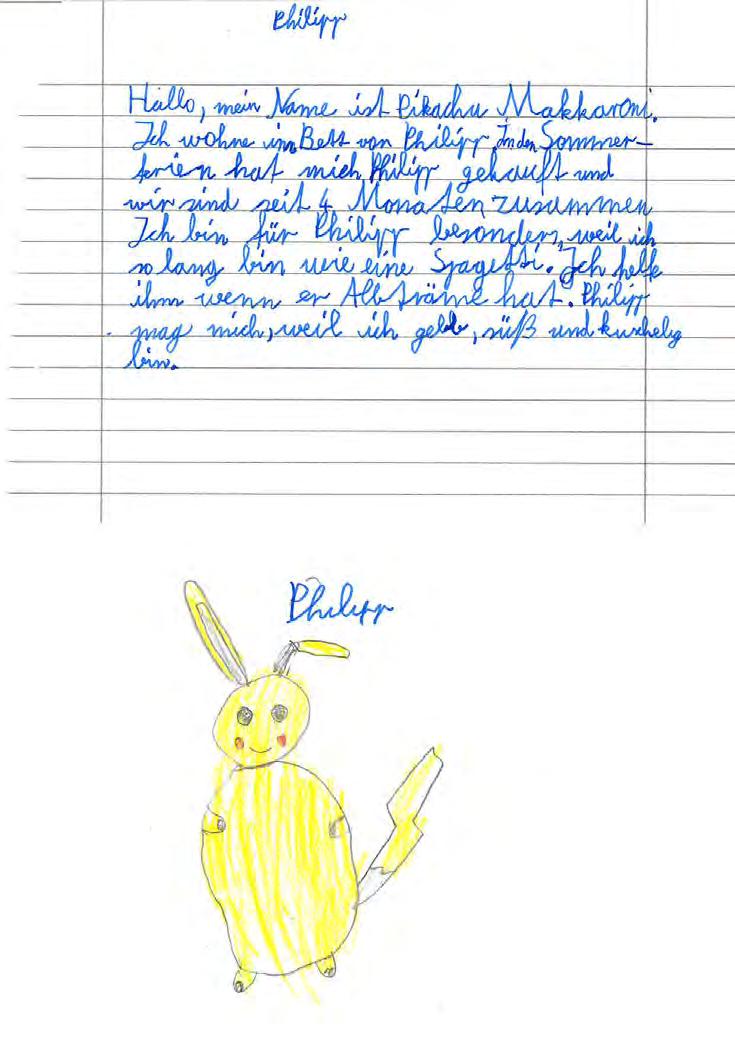 Philipp
Hallo, mein Name ist Pikachu Makkaroni.
Ich wohne im Bett von Philipp. In den Sommer-
ferien hat mich Philipp gekauft und
wir sind seit 4 Monaten zusammen
Ich bin für Philipp besonders, weil ich
so lang bin wie eine Spagetti. Ich helfe
ihm wenn er Albträme hat. Philipp
mag mich, weil ich gelb, süß und kuschelig
bin.
Philipp